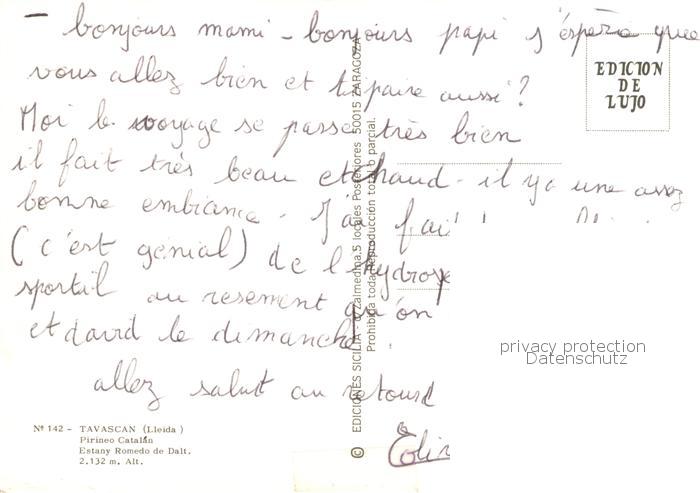 - bonjours mami - bonjours papi j'éspère que
vous allez bien et aussi?
Moi le voyage se passe très bien
il fait très beau et chaud - il y a une assez
bonne embiance - J'ai fai
(c'est génial) de l'hydrospe
sportil au resement qu'on
et david le dimanche.
allez salut au retourd
EDICION
DE
LUJO
Nº 142 - TAVASCAN (Lleida)
Pirineo Catalán
Estany Romedo de Dalt.
2.132 m. Alt.
© EDICIONES SICILIA - Zalmedina,5 locales Posteriores 50015 ZARAGOZA
Prohibida toda Reproducción total o parcial.
privacy protection
Datenschutz